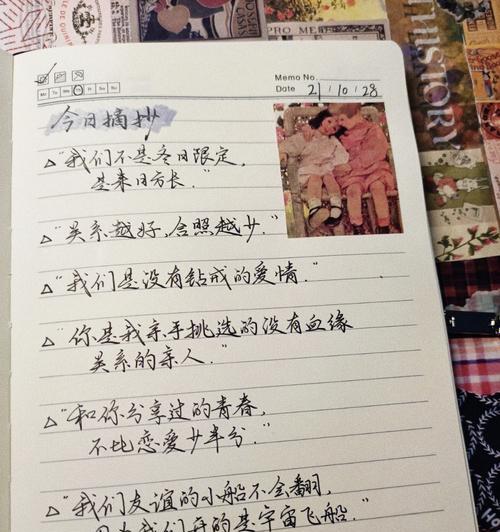 PRO MEI
HISTORY
Memo No.
Date 21 / 10 / 28
今日摘抄
△"我们不是冬日限定,
是来日方长."
△"关系越好,合照越少."
△"我们是没有钻戒的爱情."
△"你是我亲手挑选的没有血缘
关系的亲人."
△"和你分享过的青春,
不比恋爱少半分."
△"我们友谊的小船不会翻,
因为我们开的是宇宙飞船."